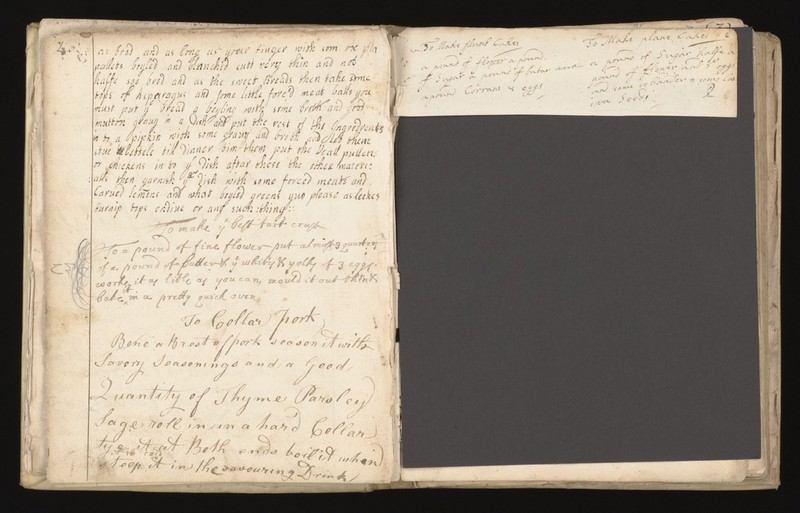 as brod and as long as your finger with som ox
pallets boyled and blanched cutt very thin and not
halfe soe brod and as the sweet Breads then take some
tops of Asparagus and some little forced meat balls you
must put ye bread a boyling with some broth and
mutton gravy in a dish and put the rest of the Ingredients
in to a Pipkin with some gravy and broth and let them
stue till dinner time then put the
or chickens in to ye dish after these the other
all then garnish ye dish with some forced meats and
Carved lemons and what boyled greens you please as
turnip tops endive or any such thing
To make ye best tart crust
To a pound of fine flower put almost 3 quarters
of a pound of butter & ye whites & yolks of 3 eggs
worke it as little as you can, mould it out thin &
bake it in a pretty quick oven
To Collar Pork
Bone a Brest of pork season it with
Savory Seasonings and a Good
Quantity of Thyme Parsley
Sage roll in in a hard Collar
tye it at Both ends boil it when
steep it in the savouring Drink
To Make plumb Cakes
a pound of flower a pound
of Sugar a pound of butter and
a pound Corrans 8 eggs
To Make plane Cakes
a pound of Sugar halfe a
pound of flower and 8 eggs
and rose water
Seeds